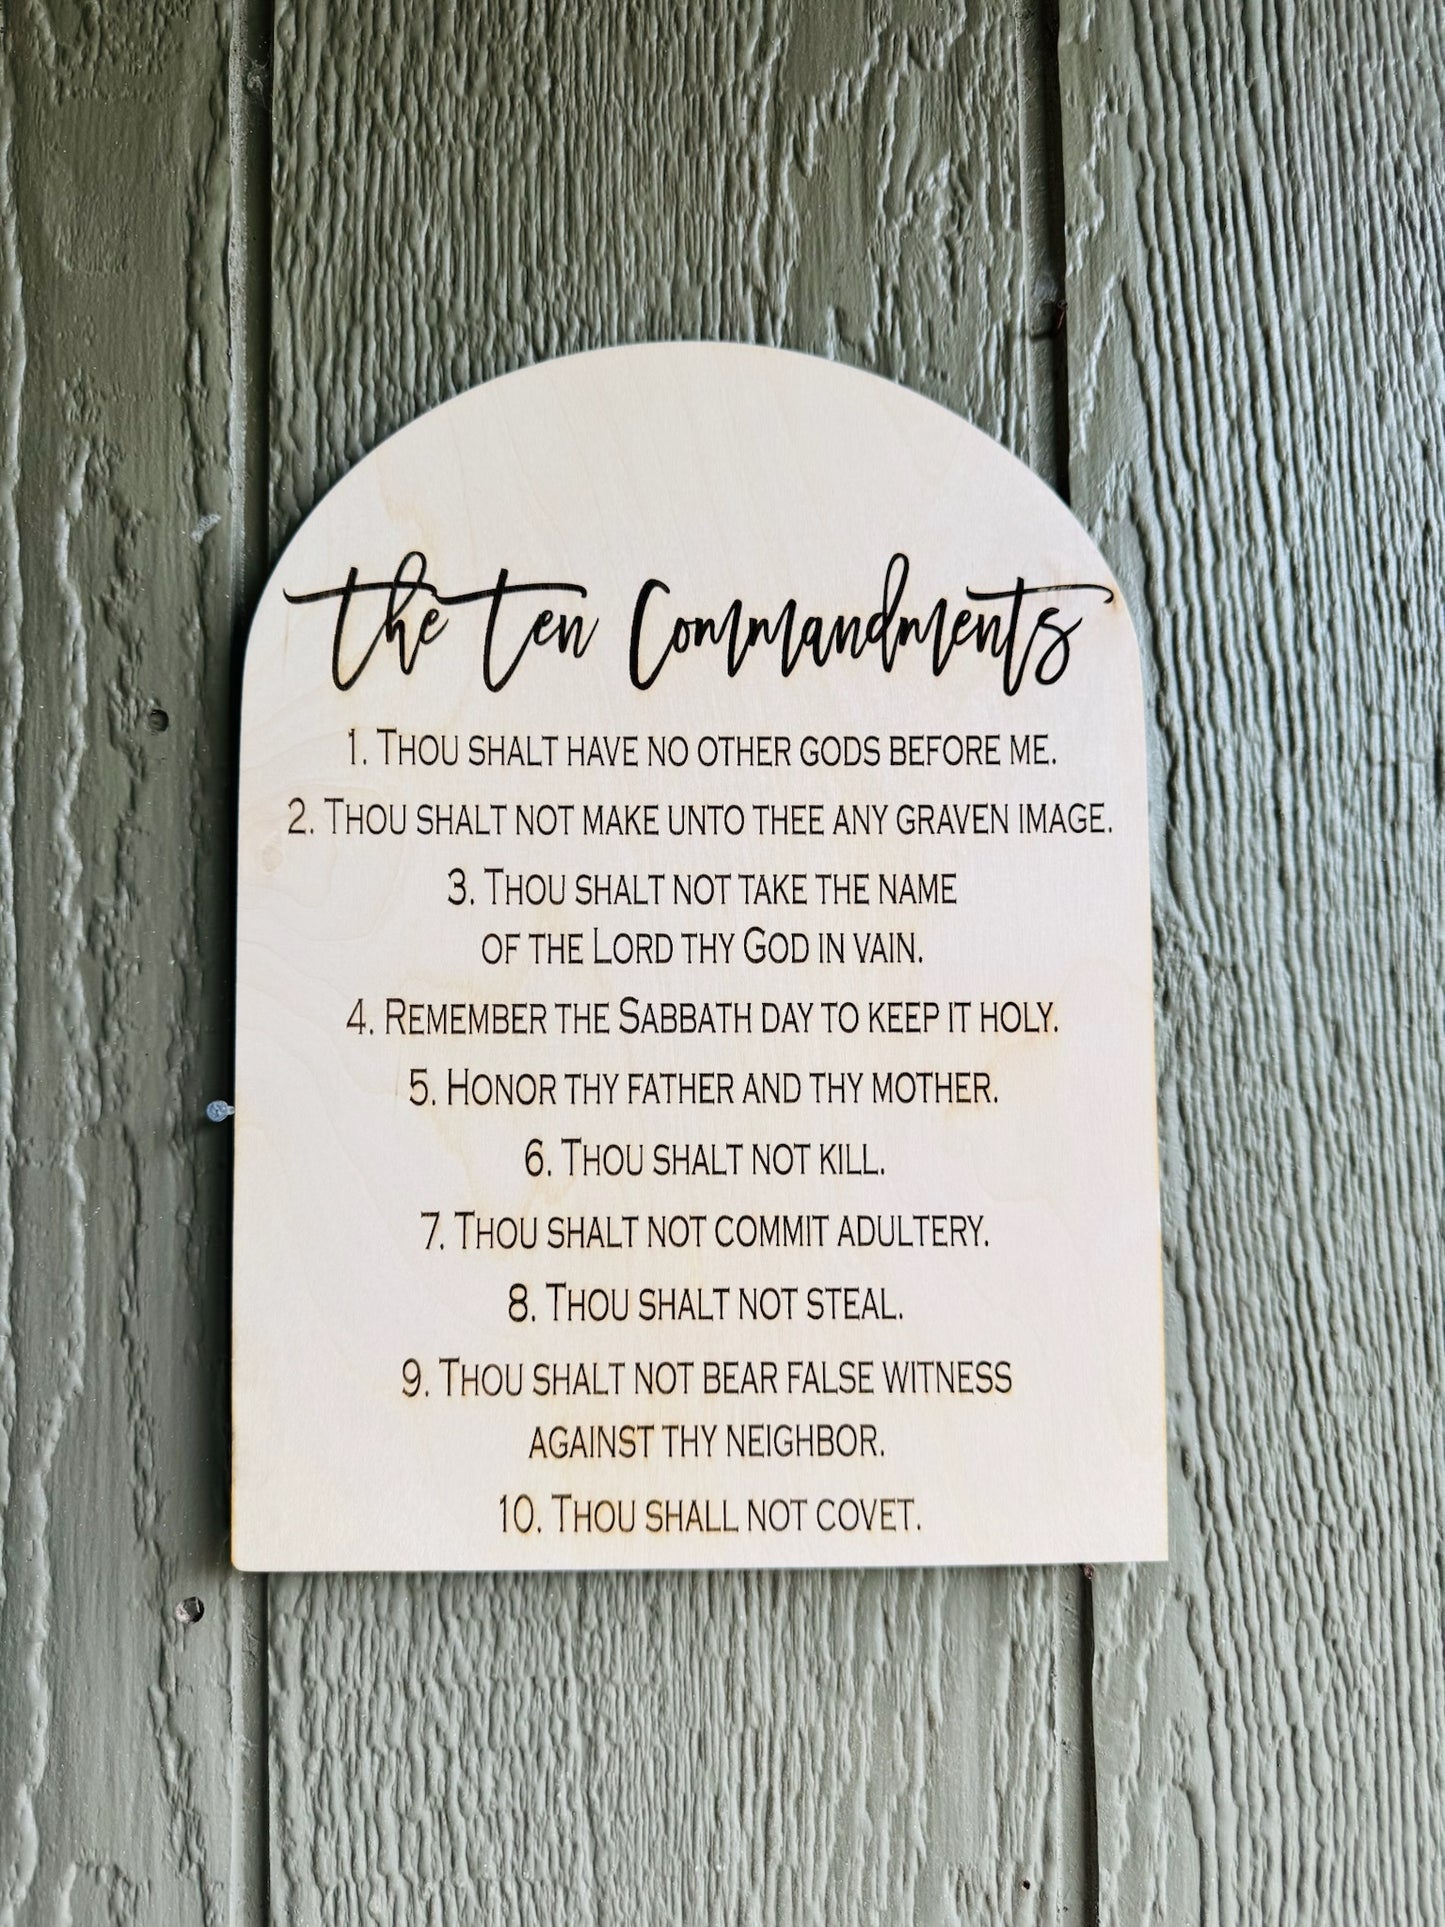 the ten Commandments
1. Thou shalt have no other gods before me.
2. Thou shalt not make unto thee any graven image.
3. Thou shalt not take the name
of the Lord thy God in vain.
4. Remember the Sabbath day to keep it holy.
5. Honor thy father and thy mother.
6. Thou shalt not kill.
7. Thou shalt not commit adultery.
8. Thou shalt not steal.
9. Thou shalt not bear false witness
against thy neighbor.
10. Thou shall not covet.